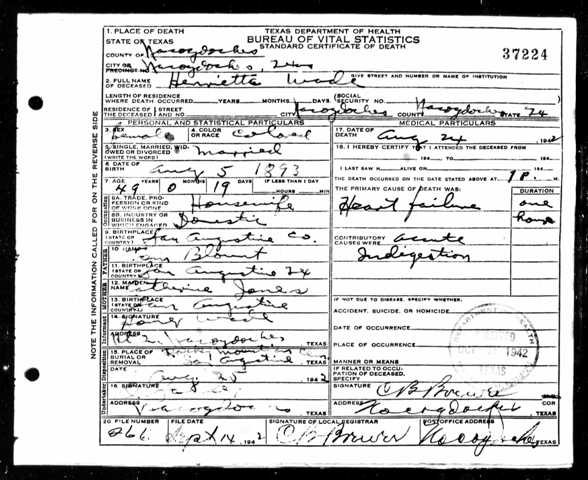 1. PLACE OF DEATH
TEXAS DEPARTMENT OF HEALTH
BUREAU OF VITAL STATISTICS
STANDARD CERTIFICATE OF DEATH
37224
STATE OF TEXAS
COUNTY OF Nacogdoches
CITY OR PRECINCT NO. Nacogdoches,
GIVE STREET AND NUMBER OR NAME OF INSTITUTION
2. FULL NAME OF DECEASED Henrietta Wade
LENGTH OF RESIDENCE WHERE DEATH OCCURRED YEARS MONTHS DAYS (SOCIAL SECURITY NO.
RESIDENCE OF THE DECEASED STREET AND NO. CITY Nacogdoches COUNTY Nacogdoches STATE
PERSONAL AND STATISTICAL PARTICULARS
MEDICAL PARTICULARS
3. SEX Female 4. COLOR OR RACE Colored
17. DATE OF DEATH Aug 24 1942
5. SINGLE, MARRIED, WIDOWED OR DIVORCED (WRITE THE WORD) Married
18. I HEREBY CERTIFY THAT I ATTENDED THE DECEASED FROM
6. DATE OF BIRTH Aug 5 1893
I LAST SAW H ALIVE ON
7. AGE 49 YEARS 0 MONTHS 19 DAYS IF LESS THAN 1 DAY HOURS MIN
THE DEATH OCCURRED ON THE DATE STATED ABOVE AT 9 P. M.
8A. TRADE, PROFESSION OR KIND OF WORK DONE Housewife
THE PRIMARY CAUSE OF DEATH WAS: DURATION
Heart failure one hour
8B. INDUSTRY OR BUSINESS IN WHICH ENGAGED Domestic
9. BIRTHPLACE (STATE OR COUNTRY) San Augustine Co.
CONTRIBUTORY CAUSES WERE: acute
Indigestion
10. NAME Blount
11. BIRTHPLACE (STATE OR COUNTRY) San Augustine
12. MAIDEN NAME Catherine Jones
13. BIRTHPLACE (STATE OR COUNTRY) San Augustine
IF NOT DUE TO DISEASE, SPECIFY WHETHER:
ACCIDENT, SUICIDE, OR HOMICIDE
14. SIGNATURE Wade
DATE OF OCCURRENCE
ADDRESS Nacogdoches TEXAS
PLACE OF OCCURRENCE
15. PLACE OF BURIAL OR REMOVAL San Augustine TEXAS
MANNER OR MEANS
Aug 25 1942
IF RELATED TO OCCUPATION OF DECEASED, SPECIFY
16. SIGNATURE
SIGNATURE C B Brewer
ADDRESS Nacogdoches TEXAS
ADDRESS Nacogdoches TEXAS
20. FILE NO. 266 FILE DATE Sept 14 1942
SIGNATURE OF LOCAL REGISTRAR C B Brewer
POSTOFFICE ADDRESS Nacogdoches, TEXAS
NOTE THE INFORMATION CALLED FOR ON THE REVERSE SIDE
FATHER
MOTHER
1942